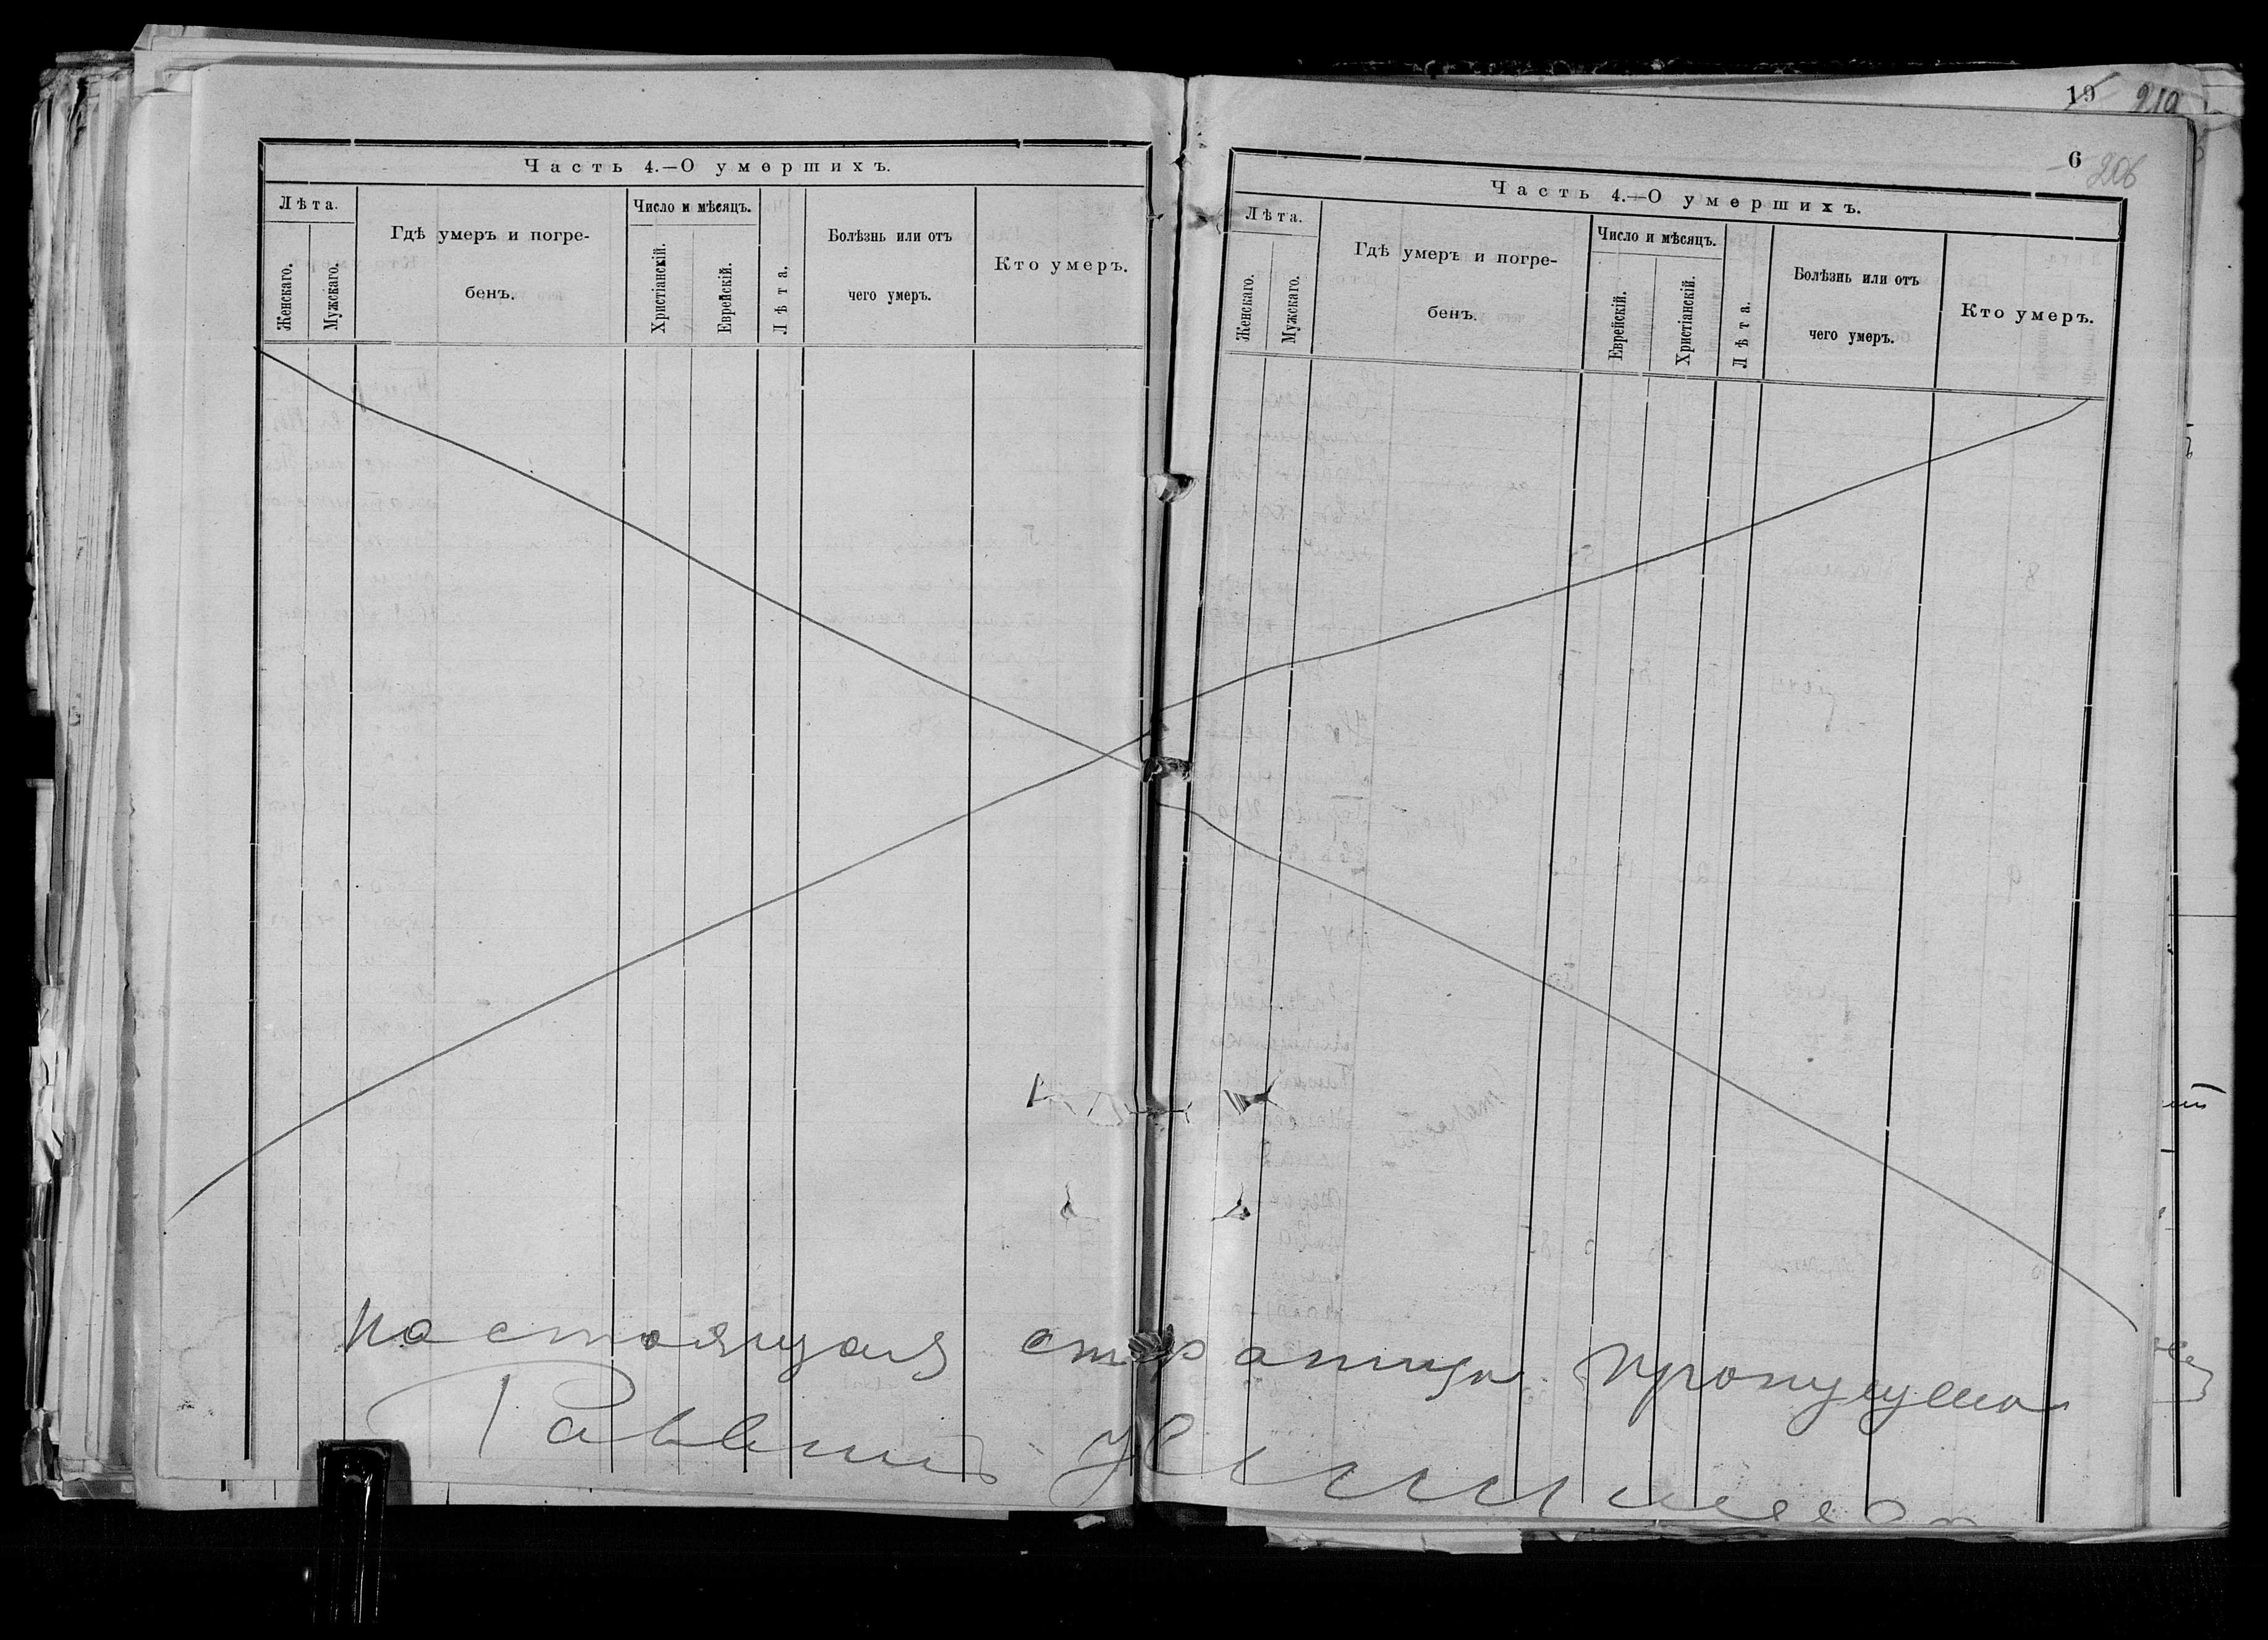 19 210
6 206
Часть 4.—О умершихъ.
Лѣта.
Женскаго.
Мужскаго.
Гдѣ умеръ и погре-
бенъ.
Число и мѣсяцъ.
Христіанскій.
Еврейскій.
Лѣта.
Болѣзнь или отъ
чего умеръ.
Кто умеръ.
Часть 4.—О умершихъ.
Лѣта.
Женскаго.
Мужскаго.
Гдѣ умеръ и погре-
бенъ.
Число и мѣсяцъ.
Еврейскій.
Христіанскій.
Лѣта.
Болѣзнь или отъ
чего умеръ.
Кто умеръ.
настоящая страница пропущена
Раввинъ